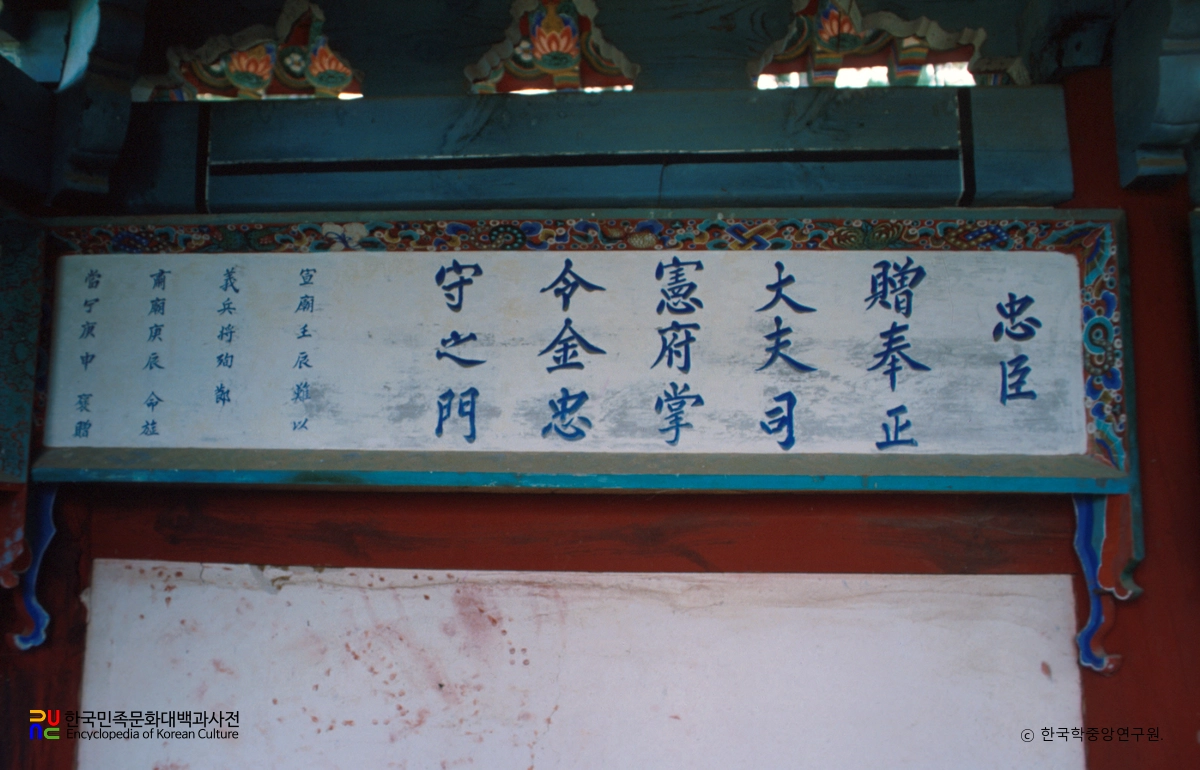 忠臣
贈奉正
大夫司
憲府掌
令金忠
守之門
宣廟壬辰難以
義兵将殉節
肅廟庚辰 命旌
當宁庚申 褒贈
한국민족문화대백과사전
Encyclopedia of Korean Culture
© 한국학중앙연구원.